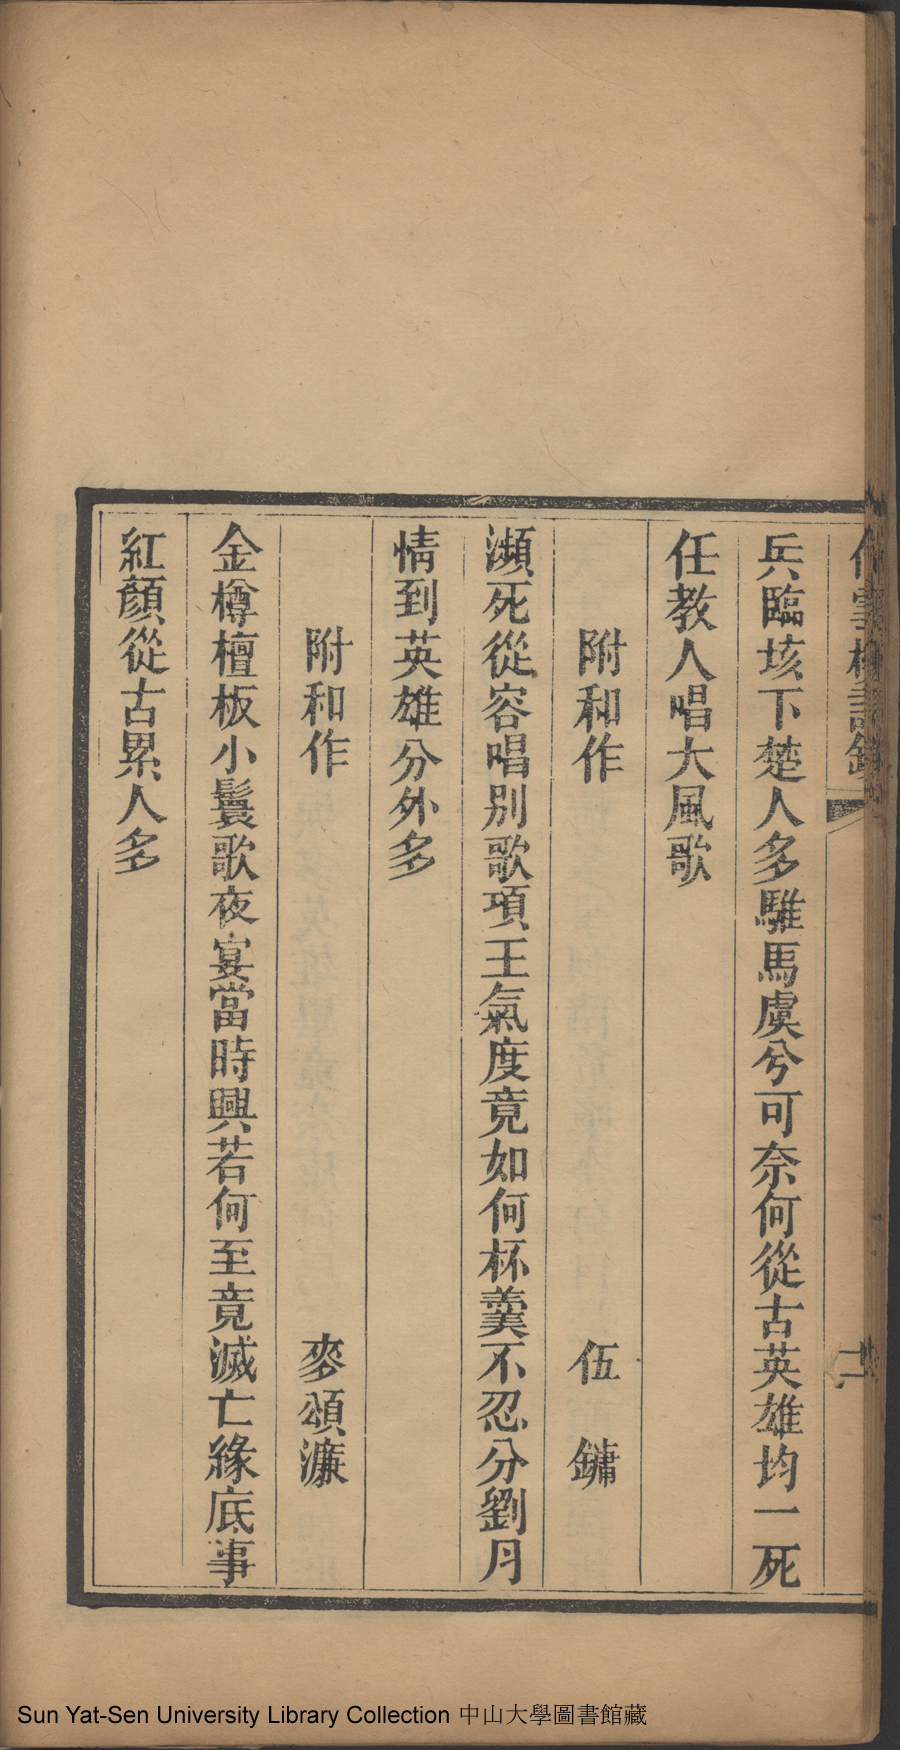 兵臨垓下楚人多騅馬虞兮可奈何從古英雄均一死
任教人唱大風歌
附和作 伍 鏞
瀕死從容唱別歌項王氣度竟如何杯羹不忍分劉丹
情到英雄分外多
附和作 麥頌濂
金樽檀板小鬟歌夜宴當時興若何至竟滅亡緣底事
紅顏從古累人多
Sun Yat-Sen University Library Collection 中山大學圖書館藏